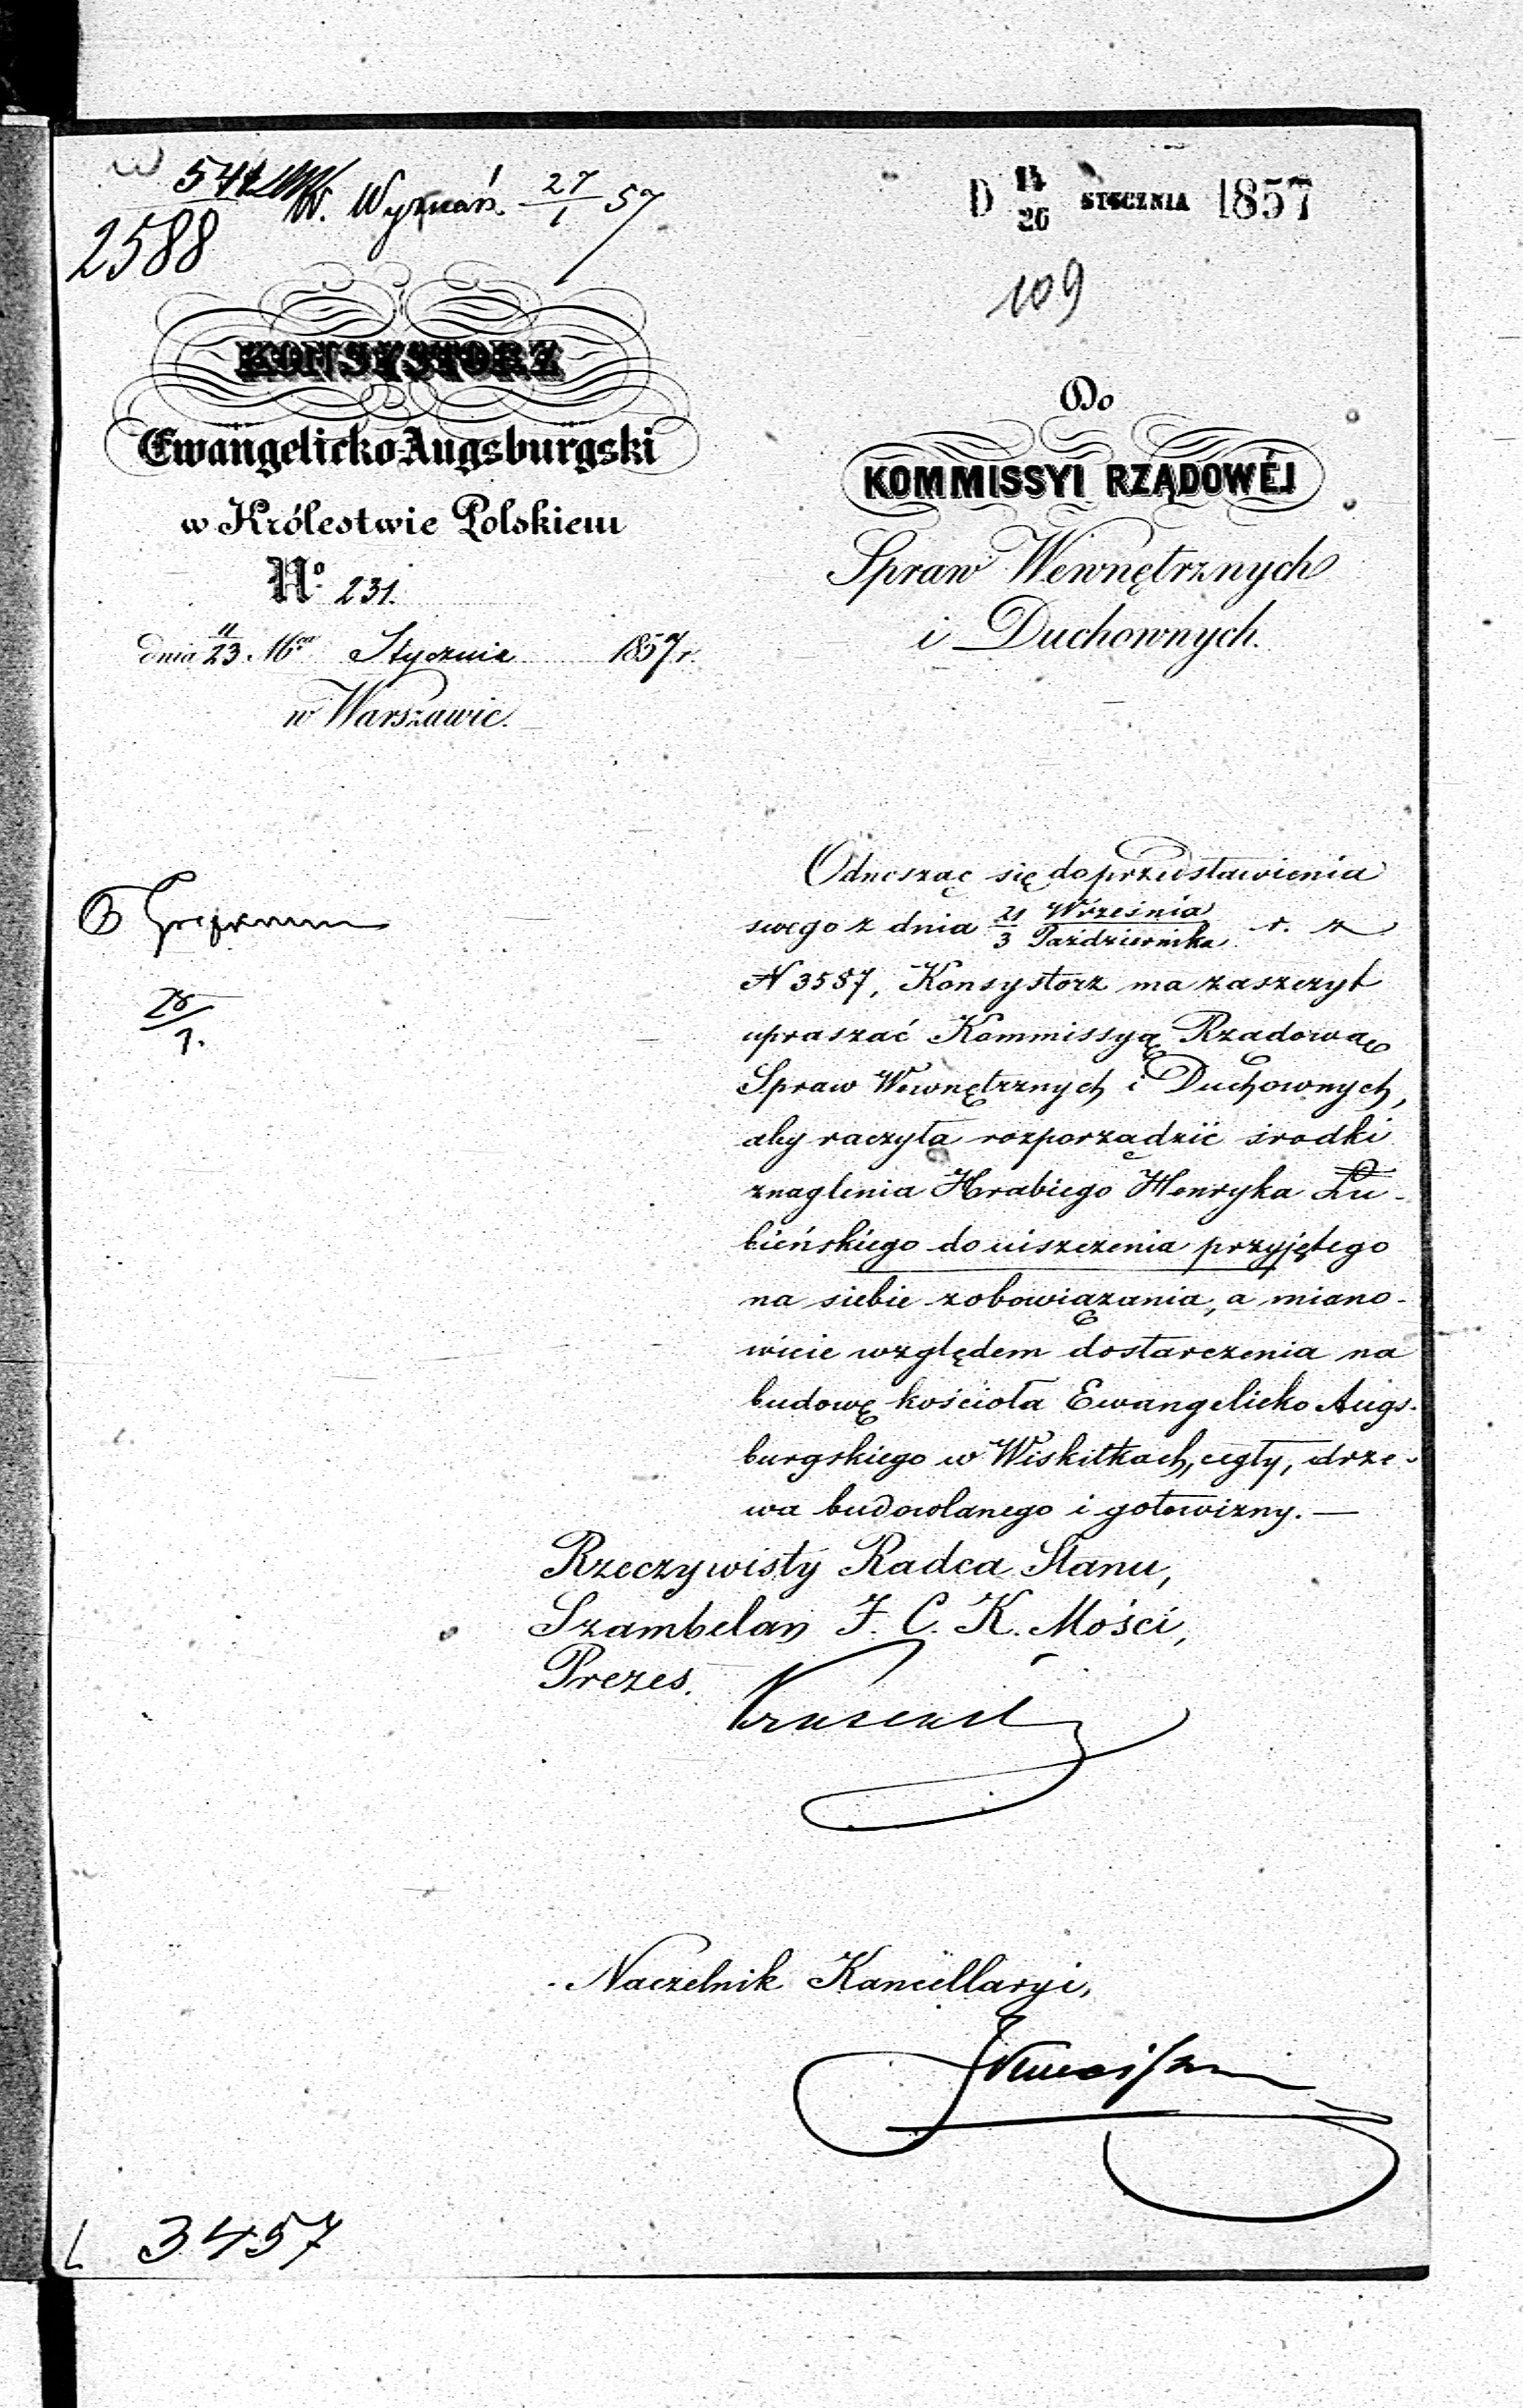 2588
W. Wyznań. 27/1 57
D 14/26 STYCZNIA 1857
109
KONSYSTORZ
Ewangelicko-Augsburgski
w Królestwie Polskiem
No. 231.
dnia 11/23 Mca Stycznia 1857 r.
w Warszawie.
Do
KOMMISSYI RZĄDOWÉJ
Spraw Wewnętrznych
i Duchownych.
28/1.
Odnosząc się do przedstawienia
swego z dnia 21 Września/3 Października r. z
N 3587, Konsystorz ma zaszczyt
upraszać Kommissyą Rządową
Spraw Wewnętrznych i Duchownych,
aby raczyła rozporządzić środki
znaglenia Hrabiego Henryka Łu-
bieńskiego do uiszczenia przyjętego
na siebie zobowiązania, a miano-
wicie względem dostarczenia na
budowę kościoła Ewangelicko Augs-
burgskiego w Wiskitkach, cegły, drze-
wa budowlanego i gotowizny. —
Rzeczywisty Radca Stanu,
Szambelan J. C. K. Mości,
Prezes.
Naczelnik Kancellaryi,
3457